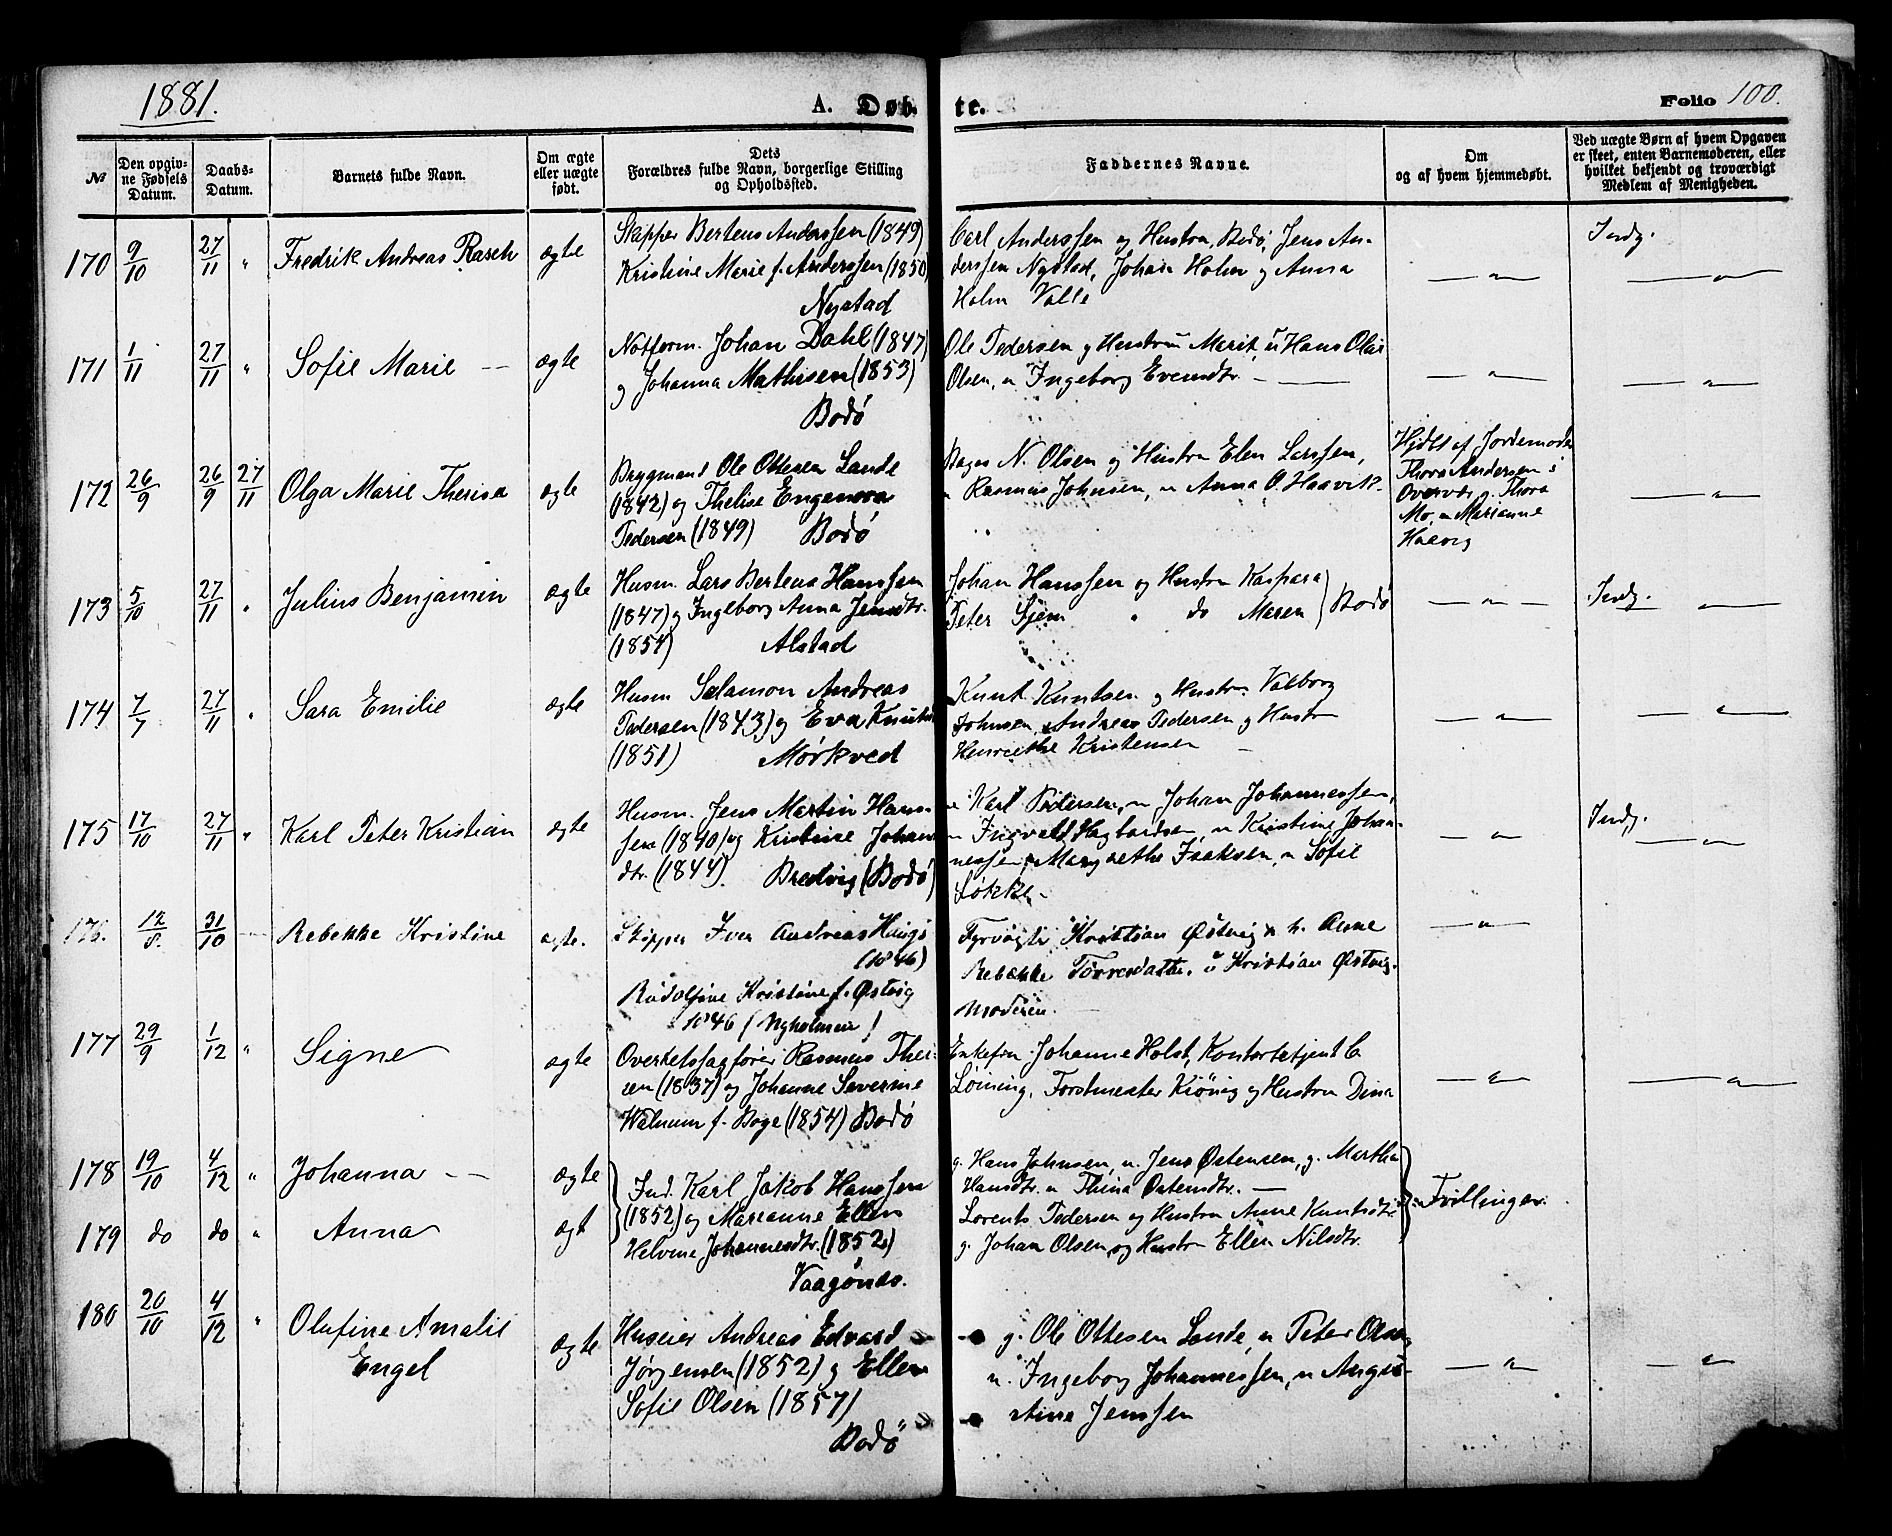 1881.
A. Døb
te.
Folio 100.
№
Den opgiv-
ne Fødsels
Datum.
Daabs-
Datum.
Barnets fulde Navn.
Om ægte
eller uægte
født.
Dets
Forældres fulde Navn, borgerlige Stilling
og Opholdssted.
Faddernes Navne.
Om
og af hvem hjemmedøbt.
Ved uægte Børn af hvem Opgaven
er skeet, enten Barnemoderen, eller
hvilket bekjendt og troværdigt
Medlem af Menigheden.
170 9/10 27/11 " Fredrik Andreas Rasch ægte
Skipper Bertens Anderssen (1849)
Kristine Marie f. Anderssen (1850)
Nystad
Carl Anderssen og Hustru, Bodø, Jens An-
derssen Nystad, Johan Holm og Anna
Holm Valle
— " —
Indg.
— " —
171 1/11 27/11 " Sofie Marie — ægte
Notform. Johan Dahl (1847)
og Johanna Mathisen (1853)
Bodø
Ole Pedersen og Hustru Marit, u Hans Olai
Olsen, u Ingeborg Evensdtr. —
— " —
— " —
172 26/9 26/9 27/11 Olga Marie Therisa ægte
Brygmand Ole Ottesen Lande
(1842) og Thelise Enganora
Pedersen (1849) Bodø
Bager N. Olsen og Hustru Elen Larssen,
u Rasmus Johnsen, u Anna O. Haavik.
Hjdbt af Jordemoder
Thora Andersen i
Overvær g. Thora
Mo, u Marianne
Haavig
— " —
173 5/10 27/11 " Julius Benjamin ægte
Husm. Lars Bertens Hanssen
(1847) og Ingeborg Anna Jensdtr.
(1854) Alstad
Johan Hanssen og Hustru Kaspara
Peter Sjem " do Maren } Bodø
— " —
Indg. — " —
174 7/7 27/11 " Sara Emilie ægte
Husm Salamon Andreas
Pedersen (1843) og Eva Knutsd
(1851) Mørkved
Knut Knutsen og Hustru Valborg
Johnsen, Andreas Pedersen og Hustru
Henriethe Kristensen —
— " —
— " —
175 17/10 27/11 " Karl Peter Kristian ægte
Husm. Jens Martin Hans-
sen (1840) og Kristine Johans
dtr. (1844). Bredvig (Bodø)
u Karl Pedersen, u Johan Johannessen,
u Ingvald Hagbardsen, u Kristine Johan-
nessen, Margrethe Isaksen, u Sofie
Løkke —
— " —
Indg.
— " —
176. 12/8. 31/10 — Rebekke Kristine ægte.
Skipper Iver Andreas
(1846)
Rudolfine Kristine f. Østvig
1846 (Nyholmen)
Fyrvogter Kristian Østvig & h. Anne
Rebekke Torresdatter. u Kristian Østvig.
moderen. —
— " —
177 29/9 1/12 " Signe ægte
Overretssagfører Rasmus Thei-
sen (1837) og Johanne Severine
Walnum f. Boge (1854) Bodø
Enkefru Johanne Holst, Kontorbetjent C.
Løining, Forstmester Kiönig og Hustru Dina
— " —
— " —
178 19/10 4/12 " Johanna — ægte
179 do do " Anna ægt
Ind. Karl Jakob Hanssen
(1852) og Marianne Ellen
Helvine Johannesdtr. (1852)
Vaagønes.
g. Hans Johnsen, u. Jens Østensen, g. Martha
Hansdtr. u Thina Østensdtr. —
Lorents Pedersen og Hustru Anne Knutsdtr
g. Johan Olsen og Hustru Ellen Nilsdtr.
Tvillinger.
180 20/10 4/12 " Olufine Amalie
Engel ægte
Huseier Andreas Edvard
Jørgensen (1852) og Ellen
Sofie Olsen (1857)
Bodø
g. Ole Ottesen Lande, u Peter Olsen,
u. Ingeborg Johannessen, u Angus-
tine Jenssen
— " —
— " —